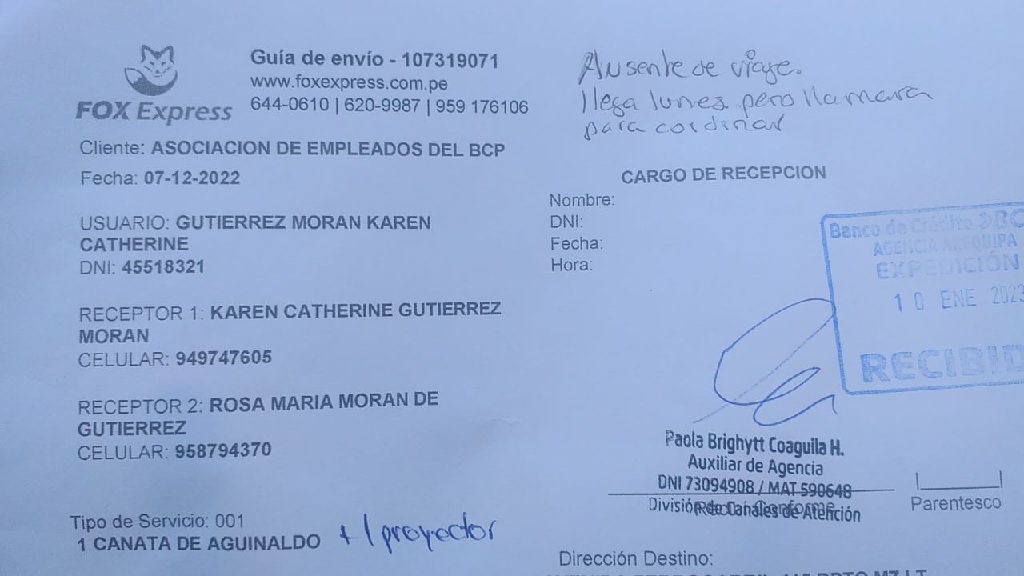 FOX Express
Guía de envío - 107319071
www.foxexpress.com.pe
644-0610 | 620-9987 | 959 176106
Cliente: ASOCIACION DE EMPLEADOS DEL BCP
Fecha: 07-12-2022
USUARIO: GUTIERREZ MORAN KAREN
CATHERINE
DNI: 45518321
RECEPTOR 1: KAREN CATHERINE GUTIERREZ
MORAN
CELULAR: 949747605
RECEPTOR 2: ROSA MARIA MORAN DE
GUTIERREZ
CELULAR: 958794370
Tipo de Servicio: 001
1 CANATA DE AGUINALDO + 1 proyector
Ausente de viaje.
llega lunes pero llamara
para cordinar
CARGO DE RECEPCION
Nombre:
DNI:
Fecha:
Hora:
Banco de Crédito BC
AGENCIA AREQUIPA
EXPEDICIÓN
10 ENE 2023
RECIBID
Paola Brighytt Coaguila H.
Auxiliar de Agencia
DNI 73094908 / MAT 590648
División de Canales de Atención
Parentesco
Dirección Destino: